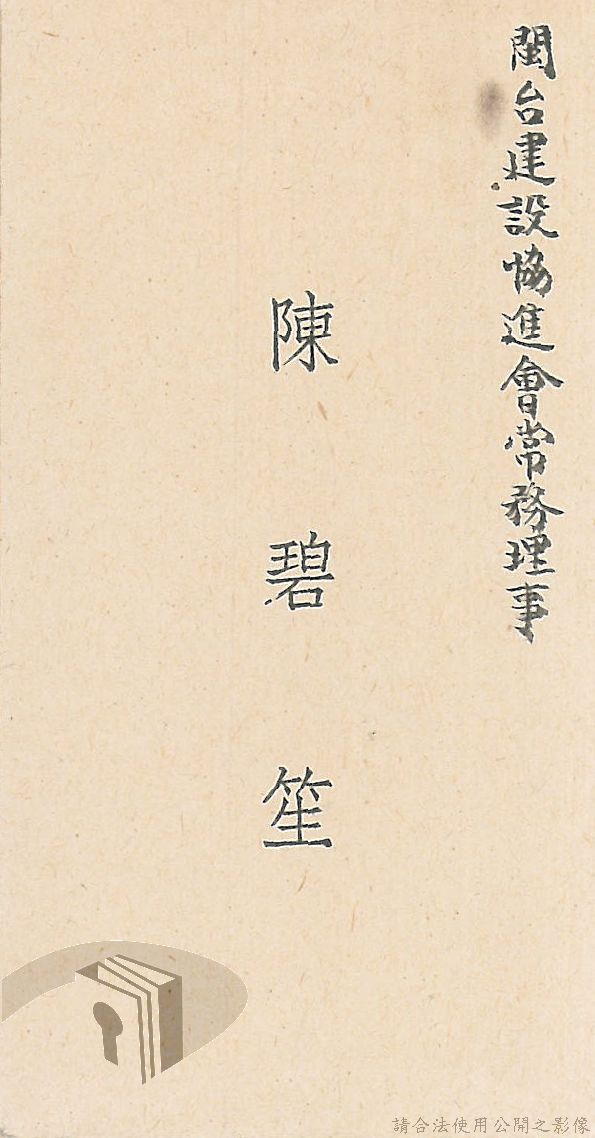 閩台建設協進會常務理事
陳碧笙
請合法使用公開之影像